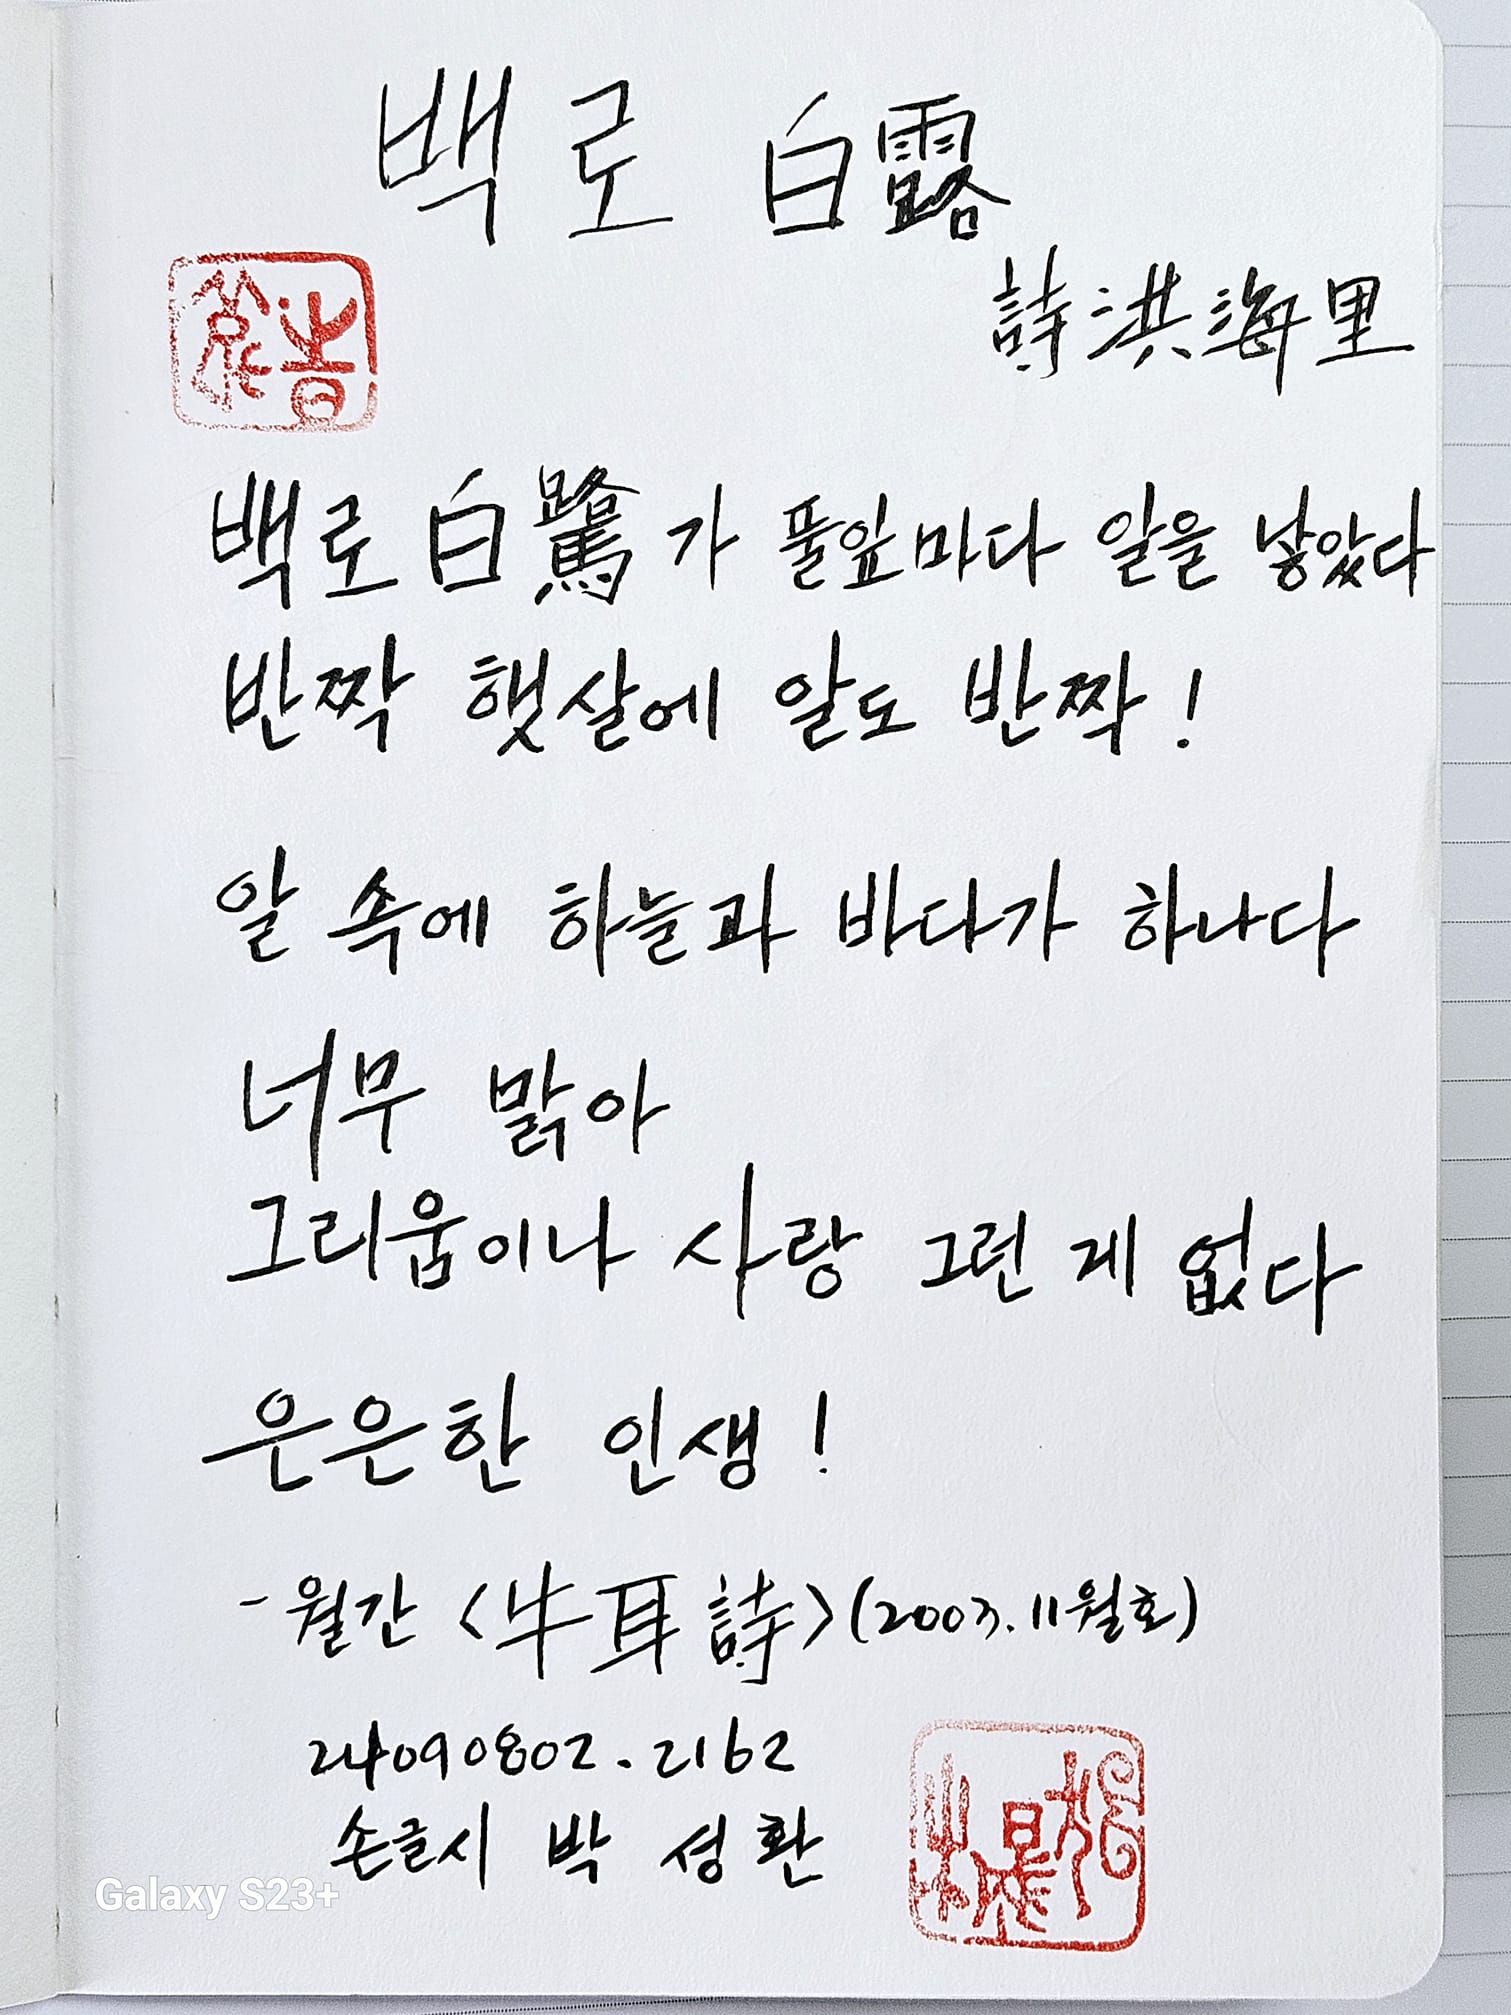 백로 白露
詩 洪海里
백로白鷺가 풀잎마다 알을 낳았다
반짝 햇살에 알도 반짝!
알 속에 하늘과 바다가 하나다
너무 맑아
그리움이나 사랑 그런 게 없다
은은한 인생!
- 월간 <牛耳詩> (2003. 11월호)
24090802. 2162
손글시 박성환
Galaxy S23+